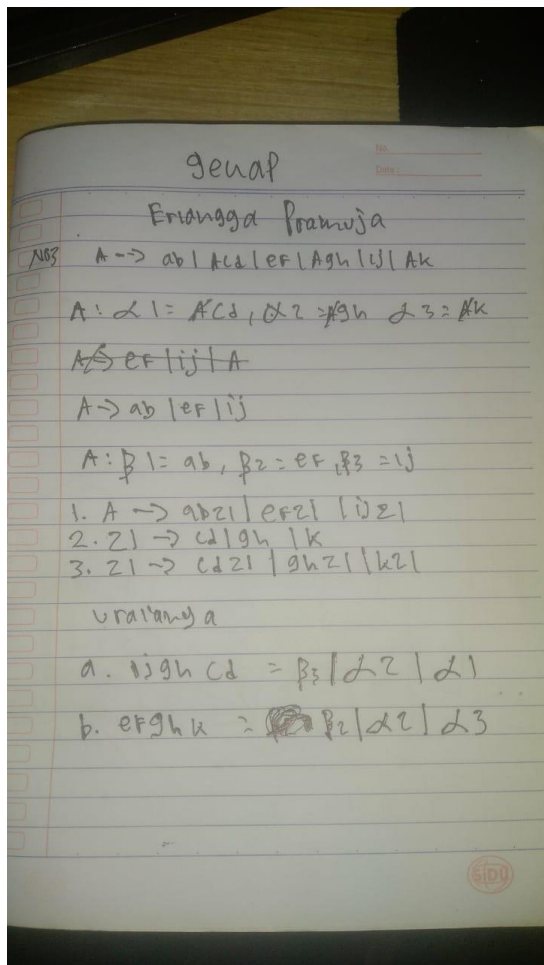 genap
No.
Date :
Erlangga Pramuja
NB3 A --> ab | Acd | eF | Agh | ij | Ak
A : α 1 = Acd, α 2 = Agh α 3 = Ak
A -> eF | ij | A
A -> ab | eF | ij
A : β 1 = ab, β2 = eF, β3 = ij
1. A -> abz1 | eFz1 | ijz1
2. Z1 -> cd | gh | k
3. Z1 -> cdz1 | ghz1 | kz1
uraianya
a. ijgh cd = β3 | α2 | α1
b. eFgh k = β2 | α2 | α3
SIDU